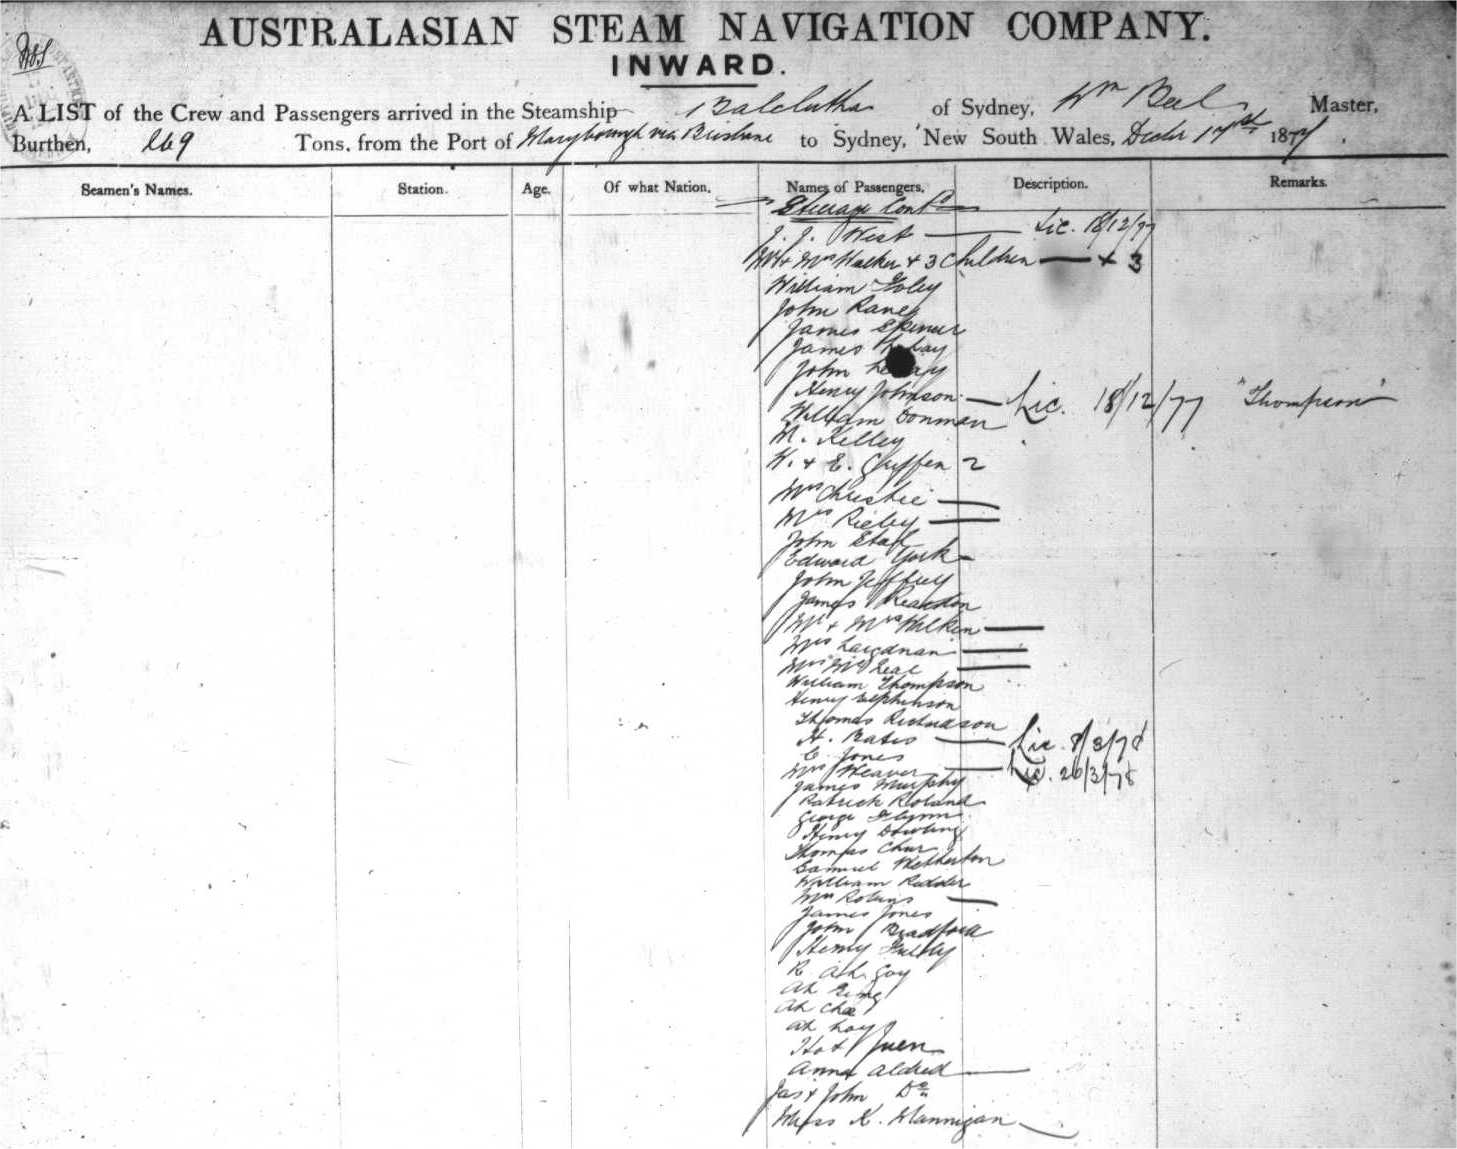 AUSTRALASIAN STEAM NAVIGATION COMPANY.
INWARD.
A LIST of the Crew and Passengers arrived in the Steamship Balclutha of Sydney, Wm Beel Master,
Burthen, 269 Tons, from the Port of Maryborough via Brisbane to Sydney, New South Wales, Decbr 17th 1877.
Seamen's Names. Station. Age. Of what Nation. Names of Passengers. Description. Remarks.
Steerage Contd
J. J. West Lic. 18/12/77
Mr & Mrs Walker & 3 Children + 3
William Foley
John Raney
James Spencer
James
John
Henry Johnson Lic. 18/12/77 "Thompson"
William Donman
M. Kelley
W. & E. Giffen 2
Mrs Christie
Mrs Rieley
John
Edward York
John Jeffrey
James Reardon
Mr & Mrs Wilkin
Mrs
Mrs
William Thompson
Henry Stephenson
Thomas Richardson
H. Bates Lic. 8/3/78
C. Jones
Mrs Weaver Lic. 26/3/78
James Murphy
Patrick Roland
George Flynn
Henry Dowling
Thomas
Samuel Wetherton
William Ridder
Mrs Robins
James Jones
John Bradford
Henry
R Ah Goy
Ah
Ah Chee
Ah Loy
Hot Juen
Anna Aldred
Jas & John Do
Miss K. Mannigan